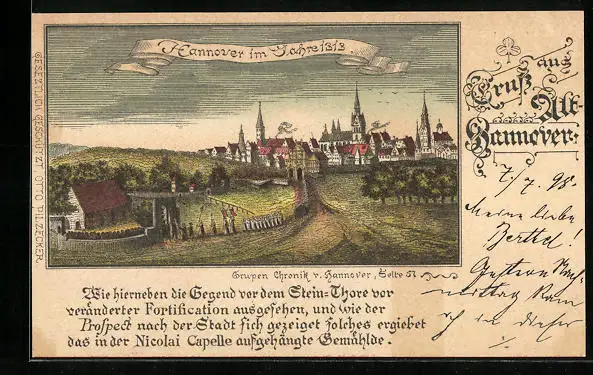 Hannover im Jahre 1313.
GESETZLICH GESCHÜTZT. OTTO PILZECKER.
Grupen Chronik v. Hannover, Seite 51
Wie hierneben die Gegend vor dem Stein=Thore vor
veränderter Fortification ausgesehen, und wie der
Prospect nach der Stadt sich gezeiget solches ergiebet
das in der Nicolai Capelle aufgehängte Gemählde.
Gruß aus
Alt-
Hannover.
7./7. 98.
Meine liebe
Berthel!
Gestern Nach-
mittag kam
ich in dieser